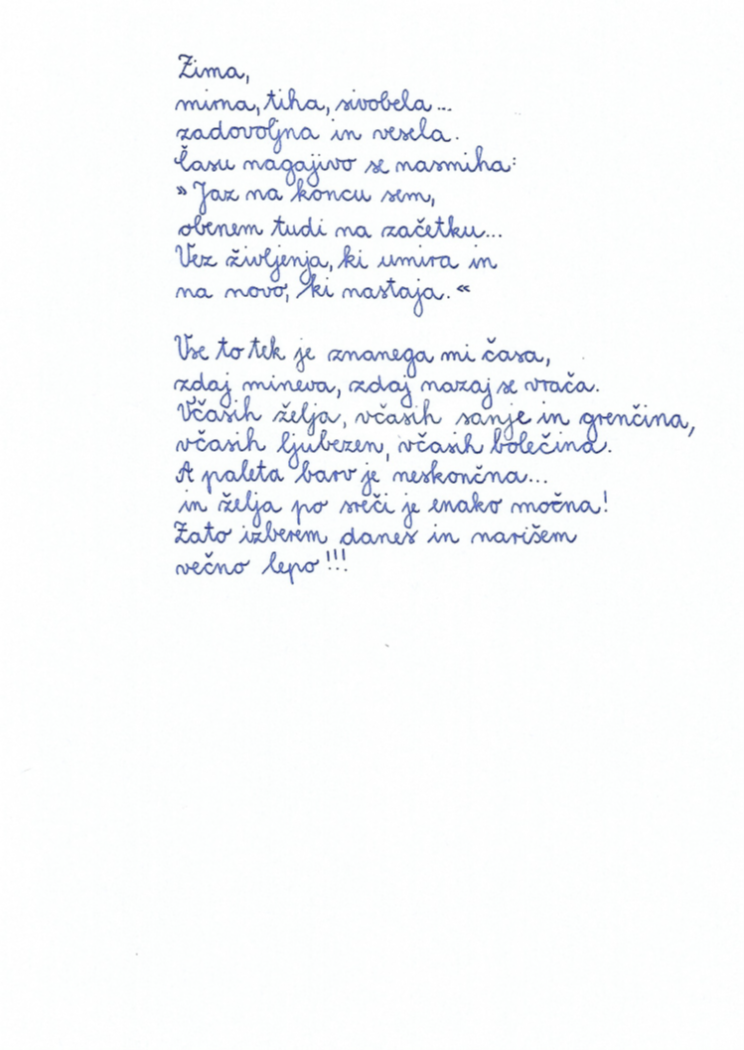 Zima,
mirna, tiha, sivobela...
zadovoljna in vesela.
Času nagajivo se nasmiha:
»Jaz na koncu sem,
obenem tudi na začetku...
Vez življenja, ki umira in
na novo, ki nastaja.«
Vse to tek je znanega mi časa,
zdaj mineva, zdaj nazaj se vrača.
Včasih želja, včasih sanje in grenčina,
včasih ljubezen, včasih bolečina.
A paleta barv je neskončna...
in želja po sreči je enako močna!
Zato izberem danes in narišem
večno lepo!!!